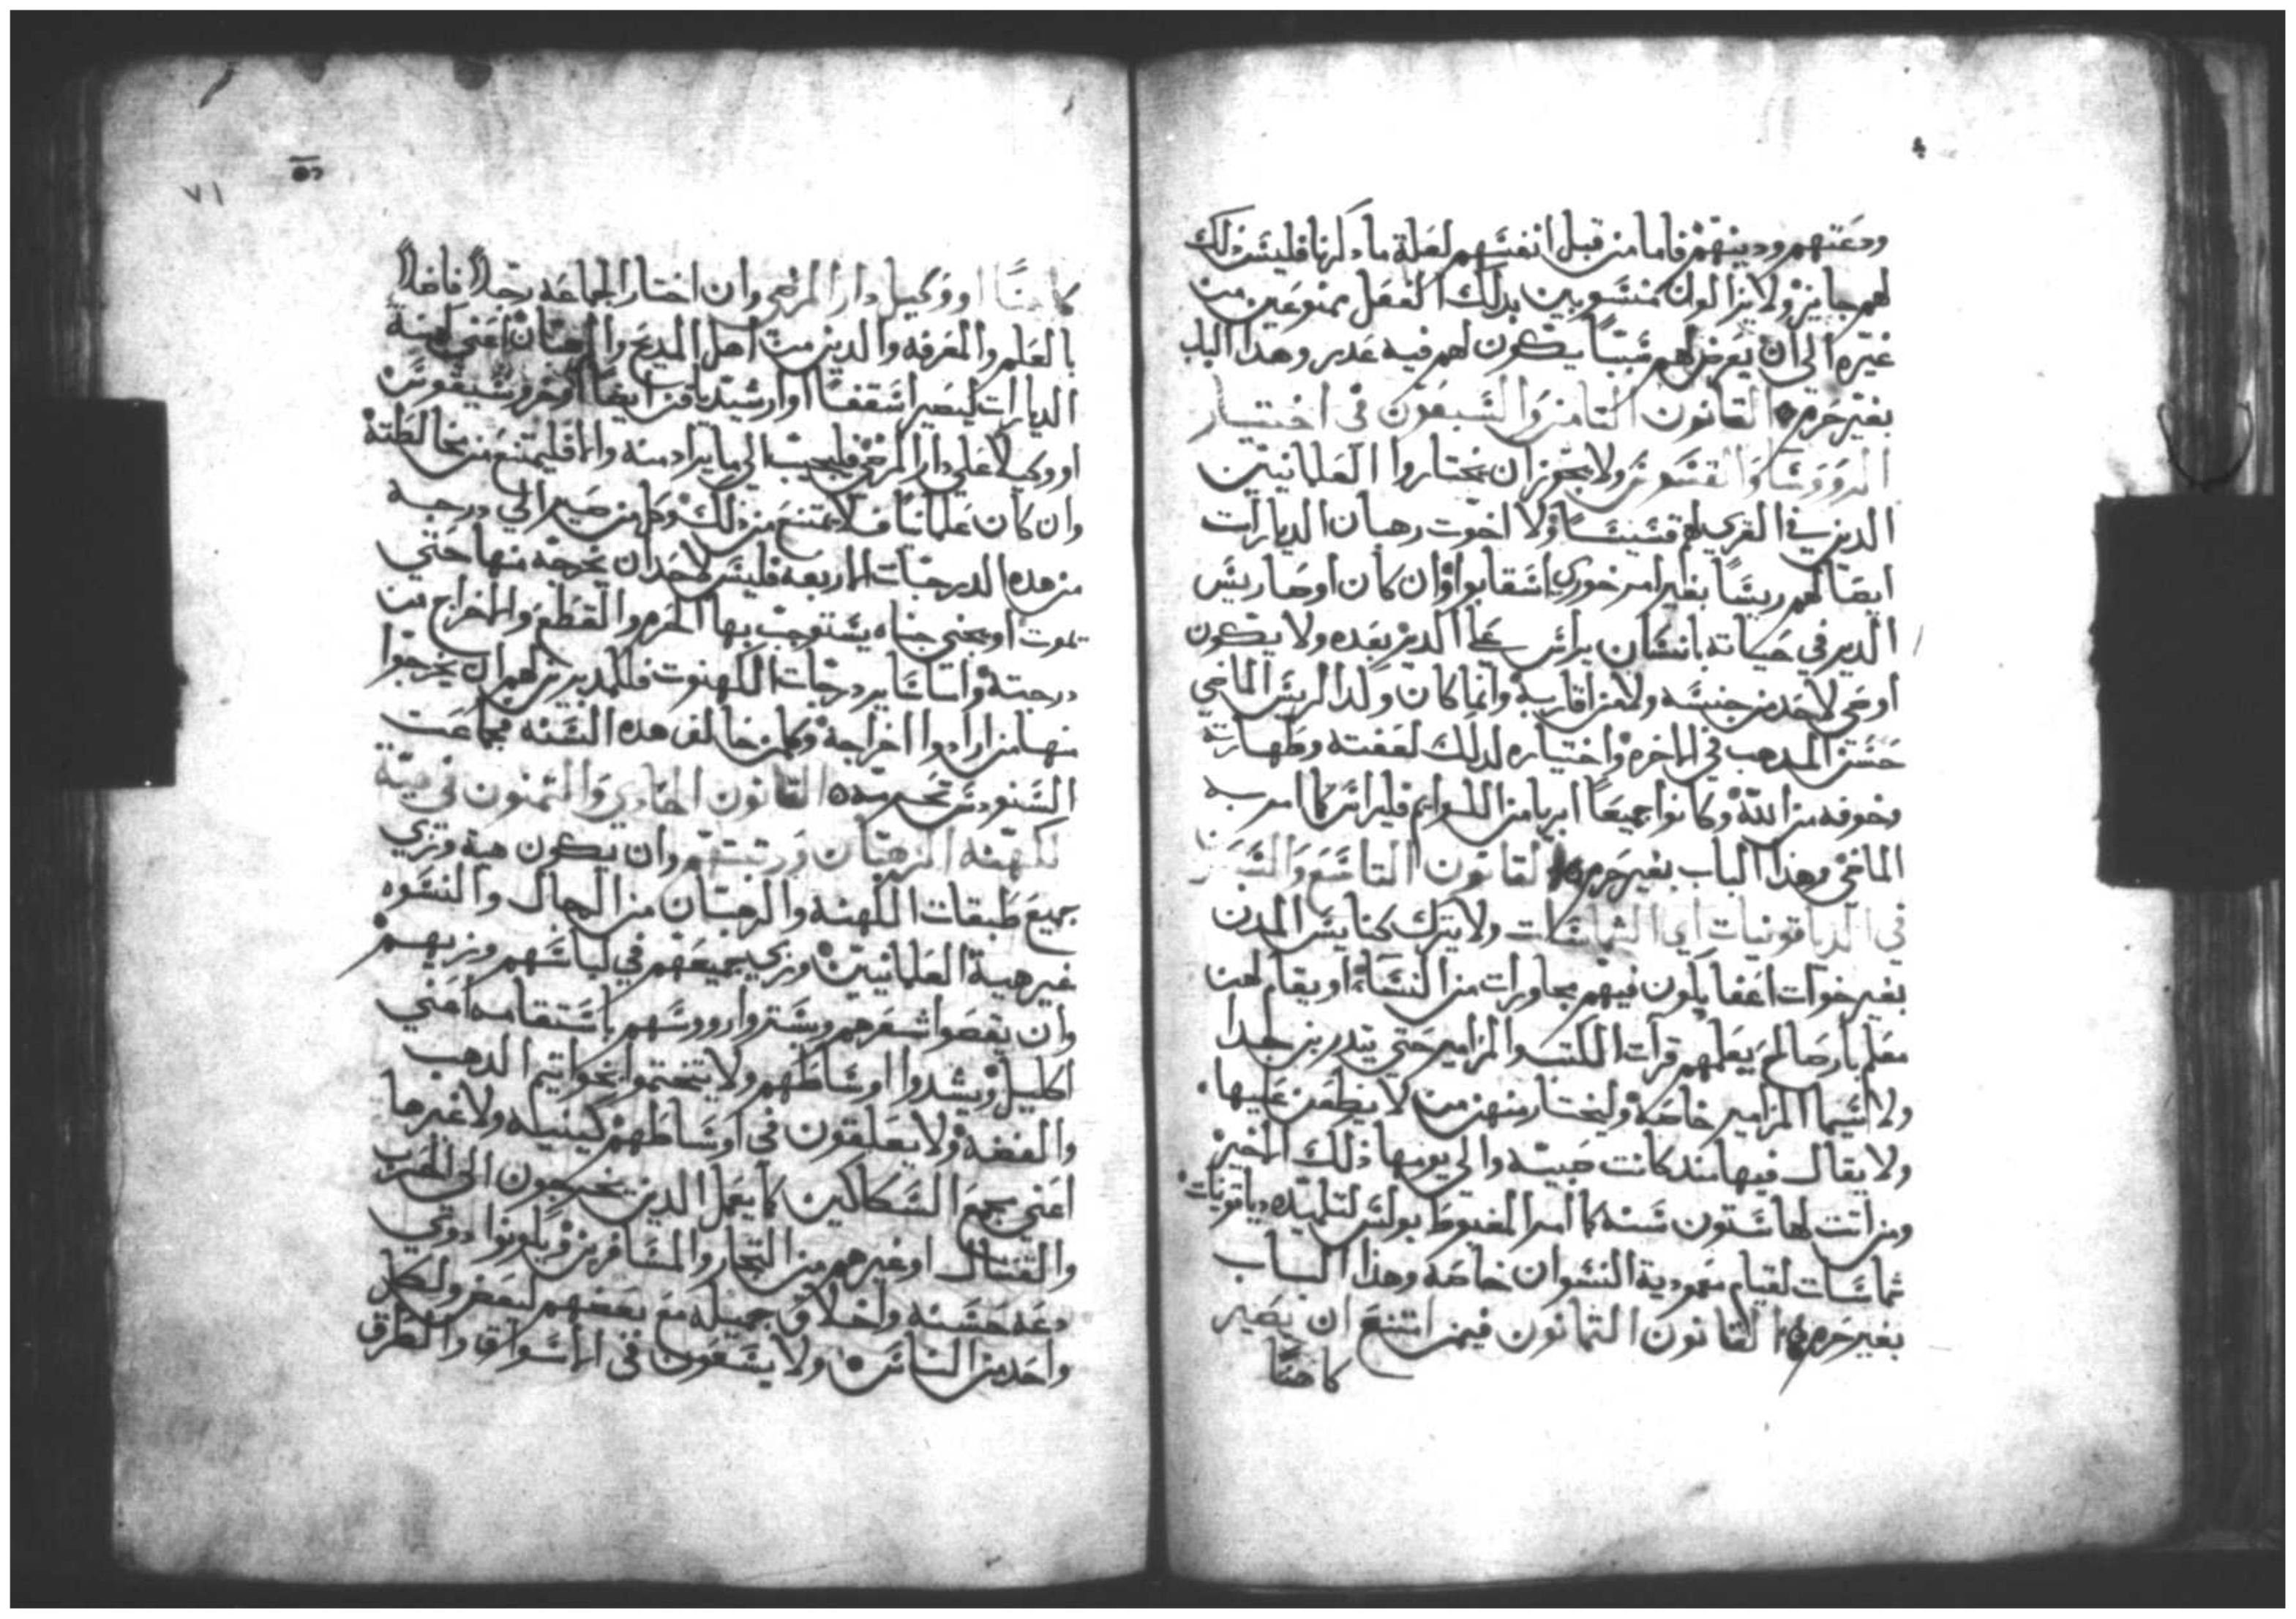 ودعتهم ودينهم فاما من قبل انفسهم لعلة ما ذكرنا فليس ذلك
لهم جايز ولا يزالون منسوبين بذلك الفعل ممنوعين من
غيره الى ان يعرض لهم سبباً يكون لهم فيه عذر وهدا الباب
بغير حرم القانون الثامن والسبعون في اختيار
الرووسا والقسوس ولا يجوز ان يختاروا العلمانيين
الدين في القرى لهم قسيساً ولا اخوت رهبان الديارات
ايضا لهم ريسًا بغير امر خوري اسقابوا وان كان اوصا ريس
الدير في حياته بانسان يرائس على الدير بعده ولا يكون
اوصى لاحد من جنسه ولا من اقاربه وانما كان ولد الريس الماضي
حسن المدهب في الاخره واختياره لدلك لعفته وطهارته
وخوفه من الله وكانوا جميعاً ابريا من اللوايم فليراس كما امر به
الماضي وهذا الباب بغير حرم القانون التاسع والسبعين
في الدياقونيات اي الشماسات ولا يترك كنايس المدن
بغير خوات اعفا يكون فيهم مجاورات من النساء او يقام لهن
معلم بار صالح يعلمهم قرات الكتب والمزامير حتى يتدربن جدا
ولا سيما المزامير خاصة وليختار منهن من لا يطعن عليها
ولا يقال فيها مند كانت صبيه والى يومها ذلك الاخير
ومن اتت لها ستون سنه كما امر المغبوط بولس لتلميده دياقونيات
شماسات لقيام معمودية النسوان خاصه وهذا الباب
بغير حرم القانون الثمانون فيمن امتنع ان يصير
كاهنًا
٧١
كاهنًا او وكيل دار المرضى وان اختار الجماعه رجلاً فاضلاً
بالعلم والمعرفه والدين من اهل المديح والرهبان اعني كهنة
الديارات ليصير اسقفًا او ارشيدياقن ايضًا او خرو
او وكيلا على دار المرضى فليجيب الى ما يراد منه والا فليمتنع من مخالطته
وان كان علمانيًا فلا يمتنع من ذلك وكل من صير الى درجه
من هده الدرجات الاربعه فليس لاحد ان يخرجه منها حتى
يموت او يجني جناه يستوجب بها الحرم والقطع والاخراج من
درجته واساساير درجات الكهنوت فللمدبرين لهم ان يخرجوا
منها من ارادوا اخراجه وكل من خالف هده السنه فجماعت
السنودس تحرمه القانون الحادي والثمنون في هية
لكهنه الرهبان ورتبتهم وان يكون هية وزي
جميع طبقات الكهنه والرهبان من الرجال والنسوه
غير هية العلمانيين وزي جميعهم في لباسهم وزيهم
وان يقصوا شعرهم ويستروا رووسهم باستقامه اعني
اكليل ويشدوا اوساطهم ولا يتختموا بخواتيم الدهب
والفضه ولا يعلقون في اوساطهم كينيله ولا غيرها
اعني جمع السكاكين كما يعمل الدين يخرجون الى الحرب
والقتال او غيرهم من التجار والمسافرين ويكونوا دوي
دعه حسنه واخلاق جميله مع بعضهم لبعض ولكل
واحد من الناس ولا يسعون في الاسواق والطرق